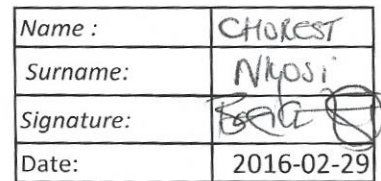 Name : CHOREST
Surname: Nkosi
Signature:
Date: 2016-02-29